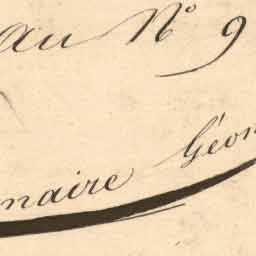 au Nº 9
naire Géom